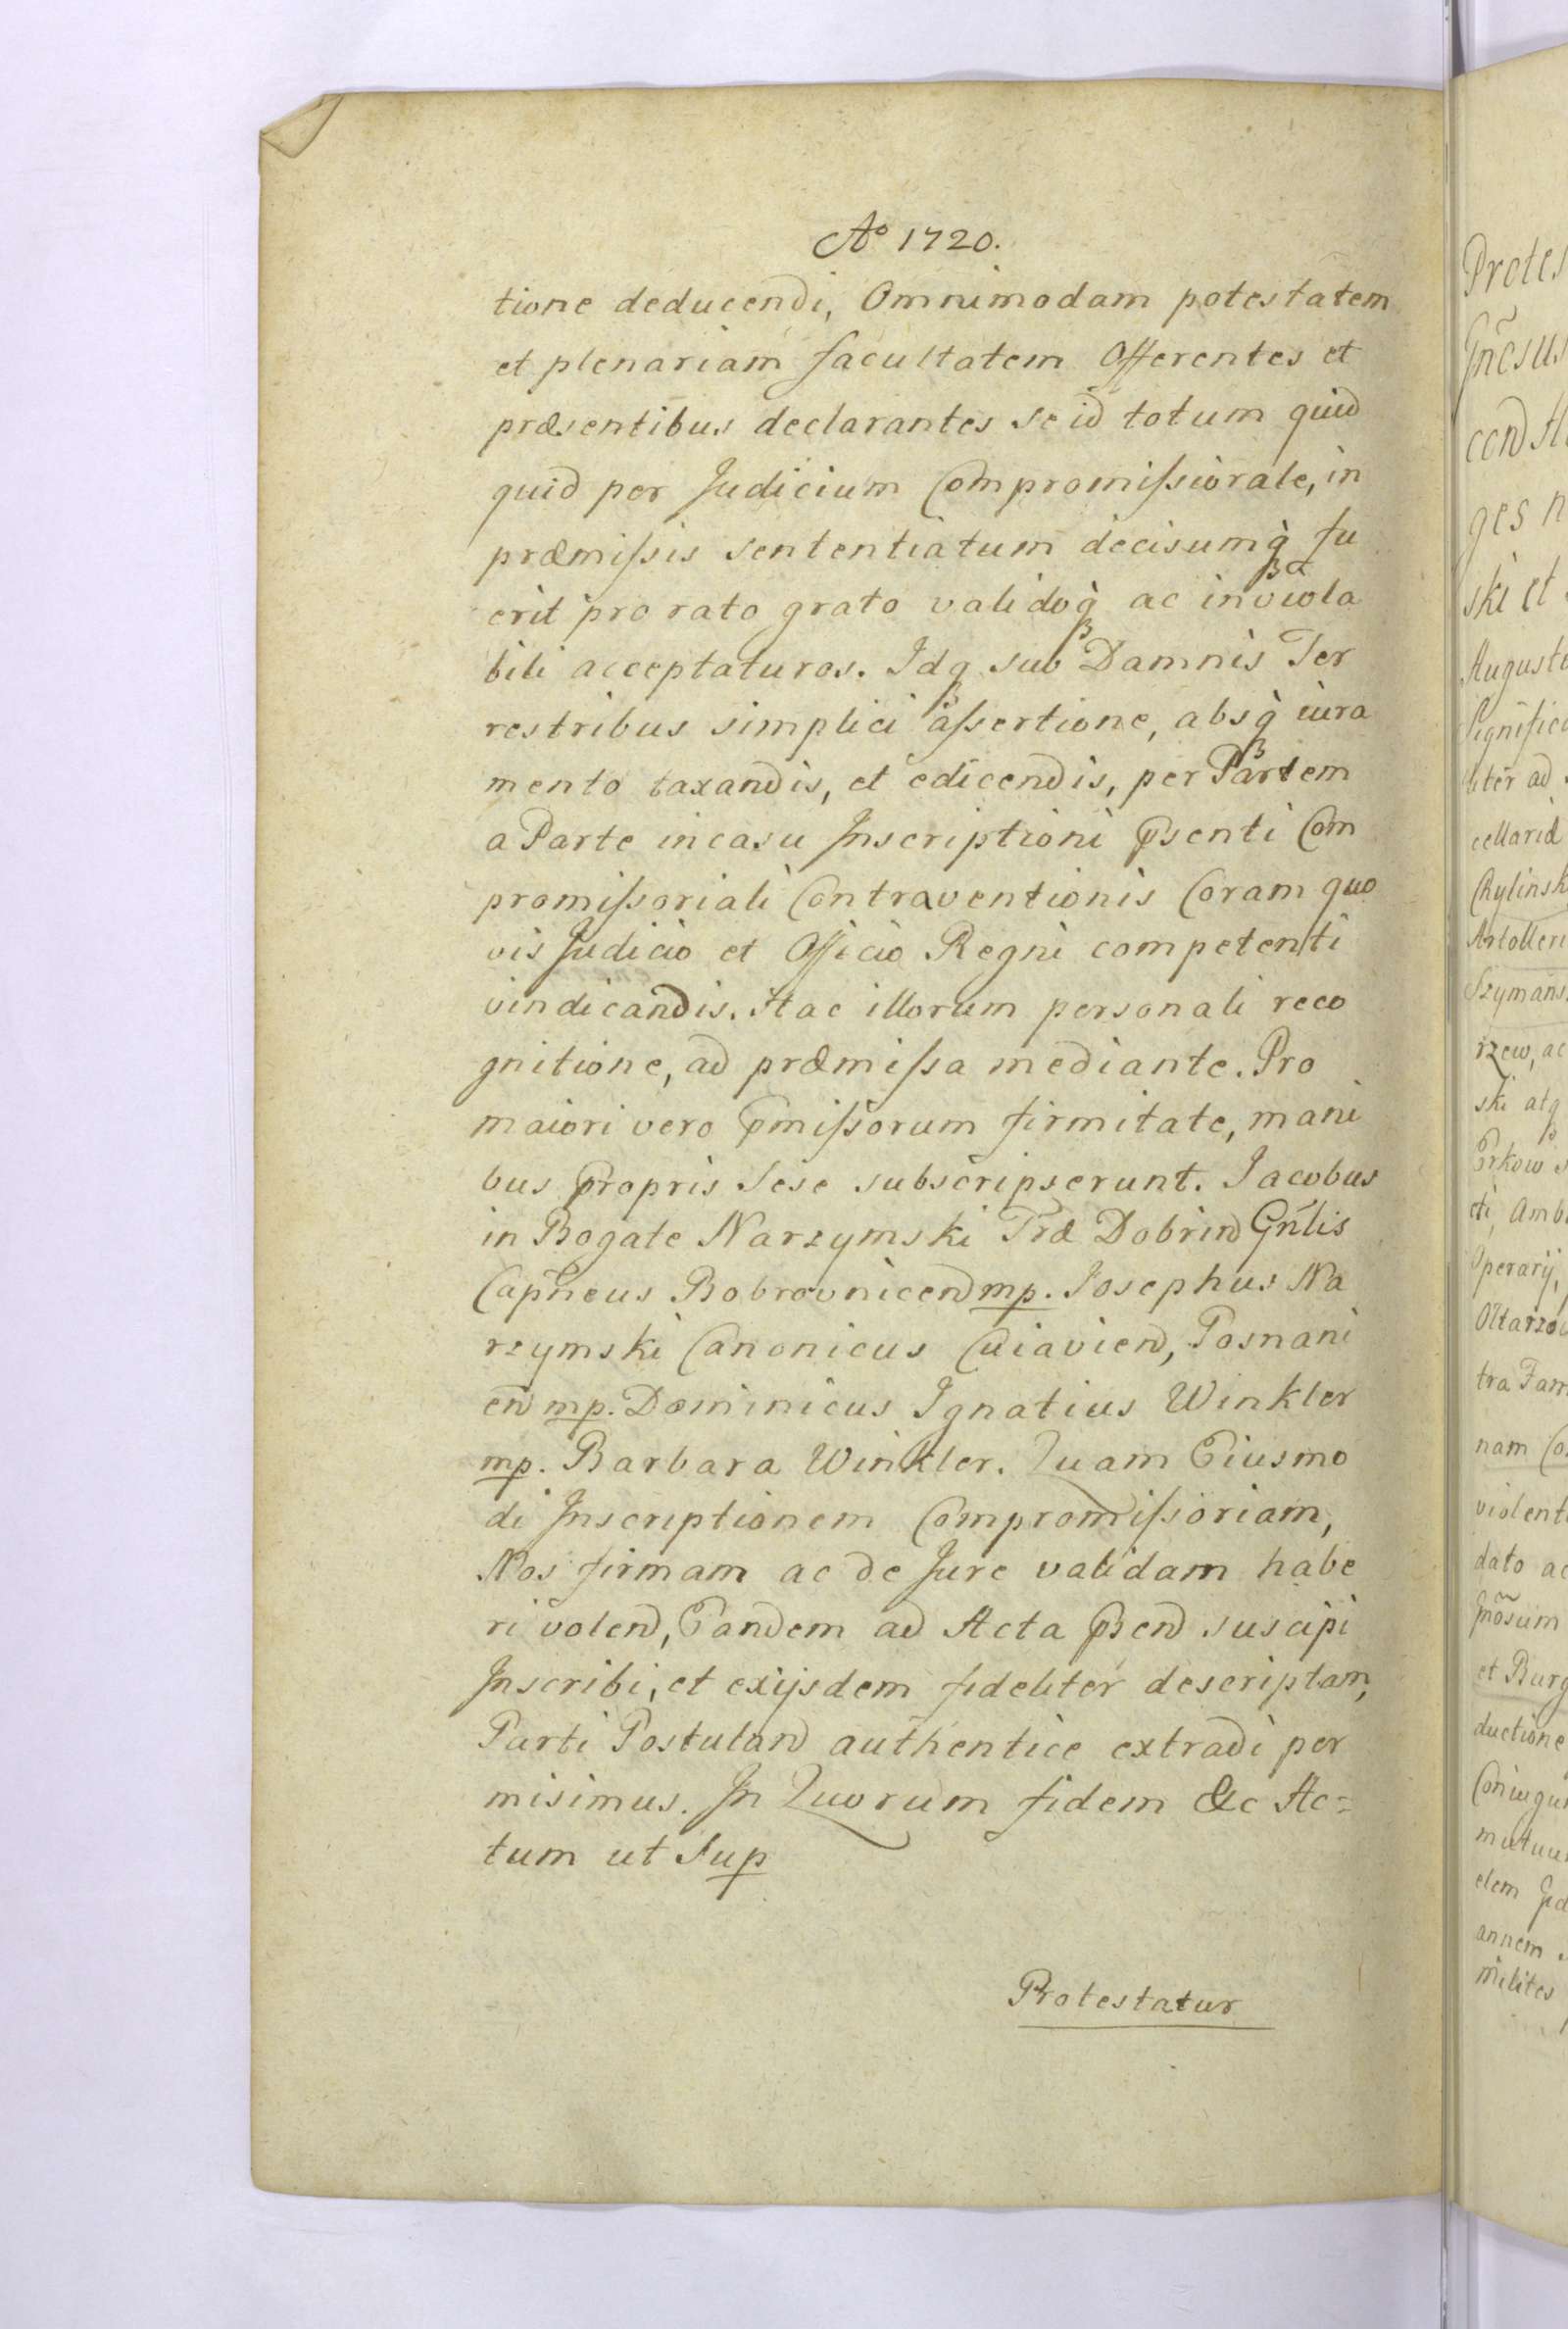 Aº 1720.
tione deducendi, Omnimodam potestatem
et plenariam facultatem Offerentes et
præsentibus declarantes se id totum quid
quid per Judicium Compromiſsiorale, in
præmiſsis sententiatum decisumq̀ fu
erit pro rato grato validoq̀ ac inviola
bili acceptaturos. Idq sub Damnis Ter
restribus simplici aſsertione, absq̀ iura
mento taxandis, et edicendis, per Partem
a Parte in casu Inscriptioni Psenti Com
promiſsoriali Contraventionis Coram quo
vis Judicio et Officio Regni competenti
vindicandis. Hac illorum personali reco
gnitione, ad præmiſsa mediante. Pro
maiori vero Pmiſsorum firmitate, mani
bus Propris Sese subscripserunt. Jacobus
in Bogate Narzymski Træ Dobrin Gñlis
Capñeus Bobrovnicen mp. Josephus Na
rzymski Canonicus Cuiavien, Posnani
en mp. Dominicus Ignatius Winkler
mp. Barbara Winkler. Quam Eiusmo
di Inscriptionem Compromiſsoriam,
Nos firmam ac de Jure validam habe
ri volen, Eandem ad Acta Psen suscipi
Inscribi, et exijsdem fideliter descriptam,
Parti Postulan authentice extradi per
misimus. In Quorum fidem &c Ac=
tum ut Sup
Protestatur